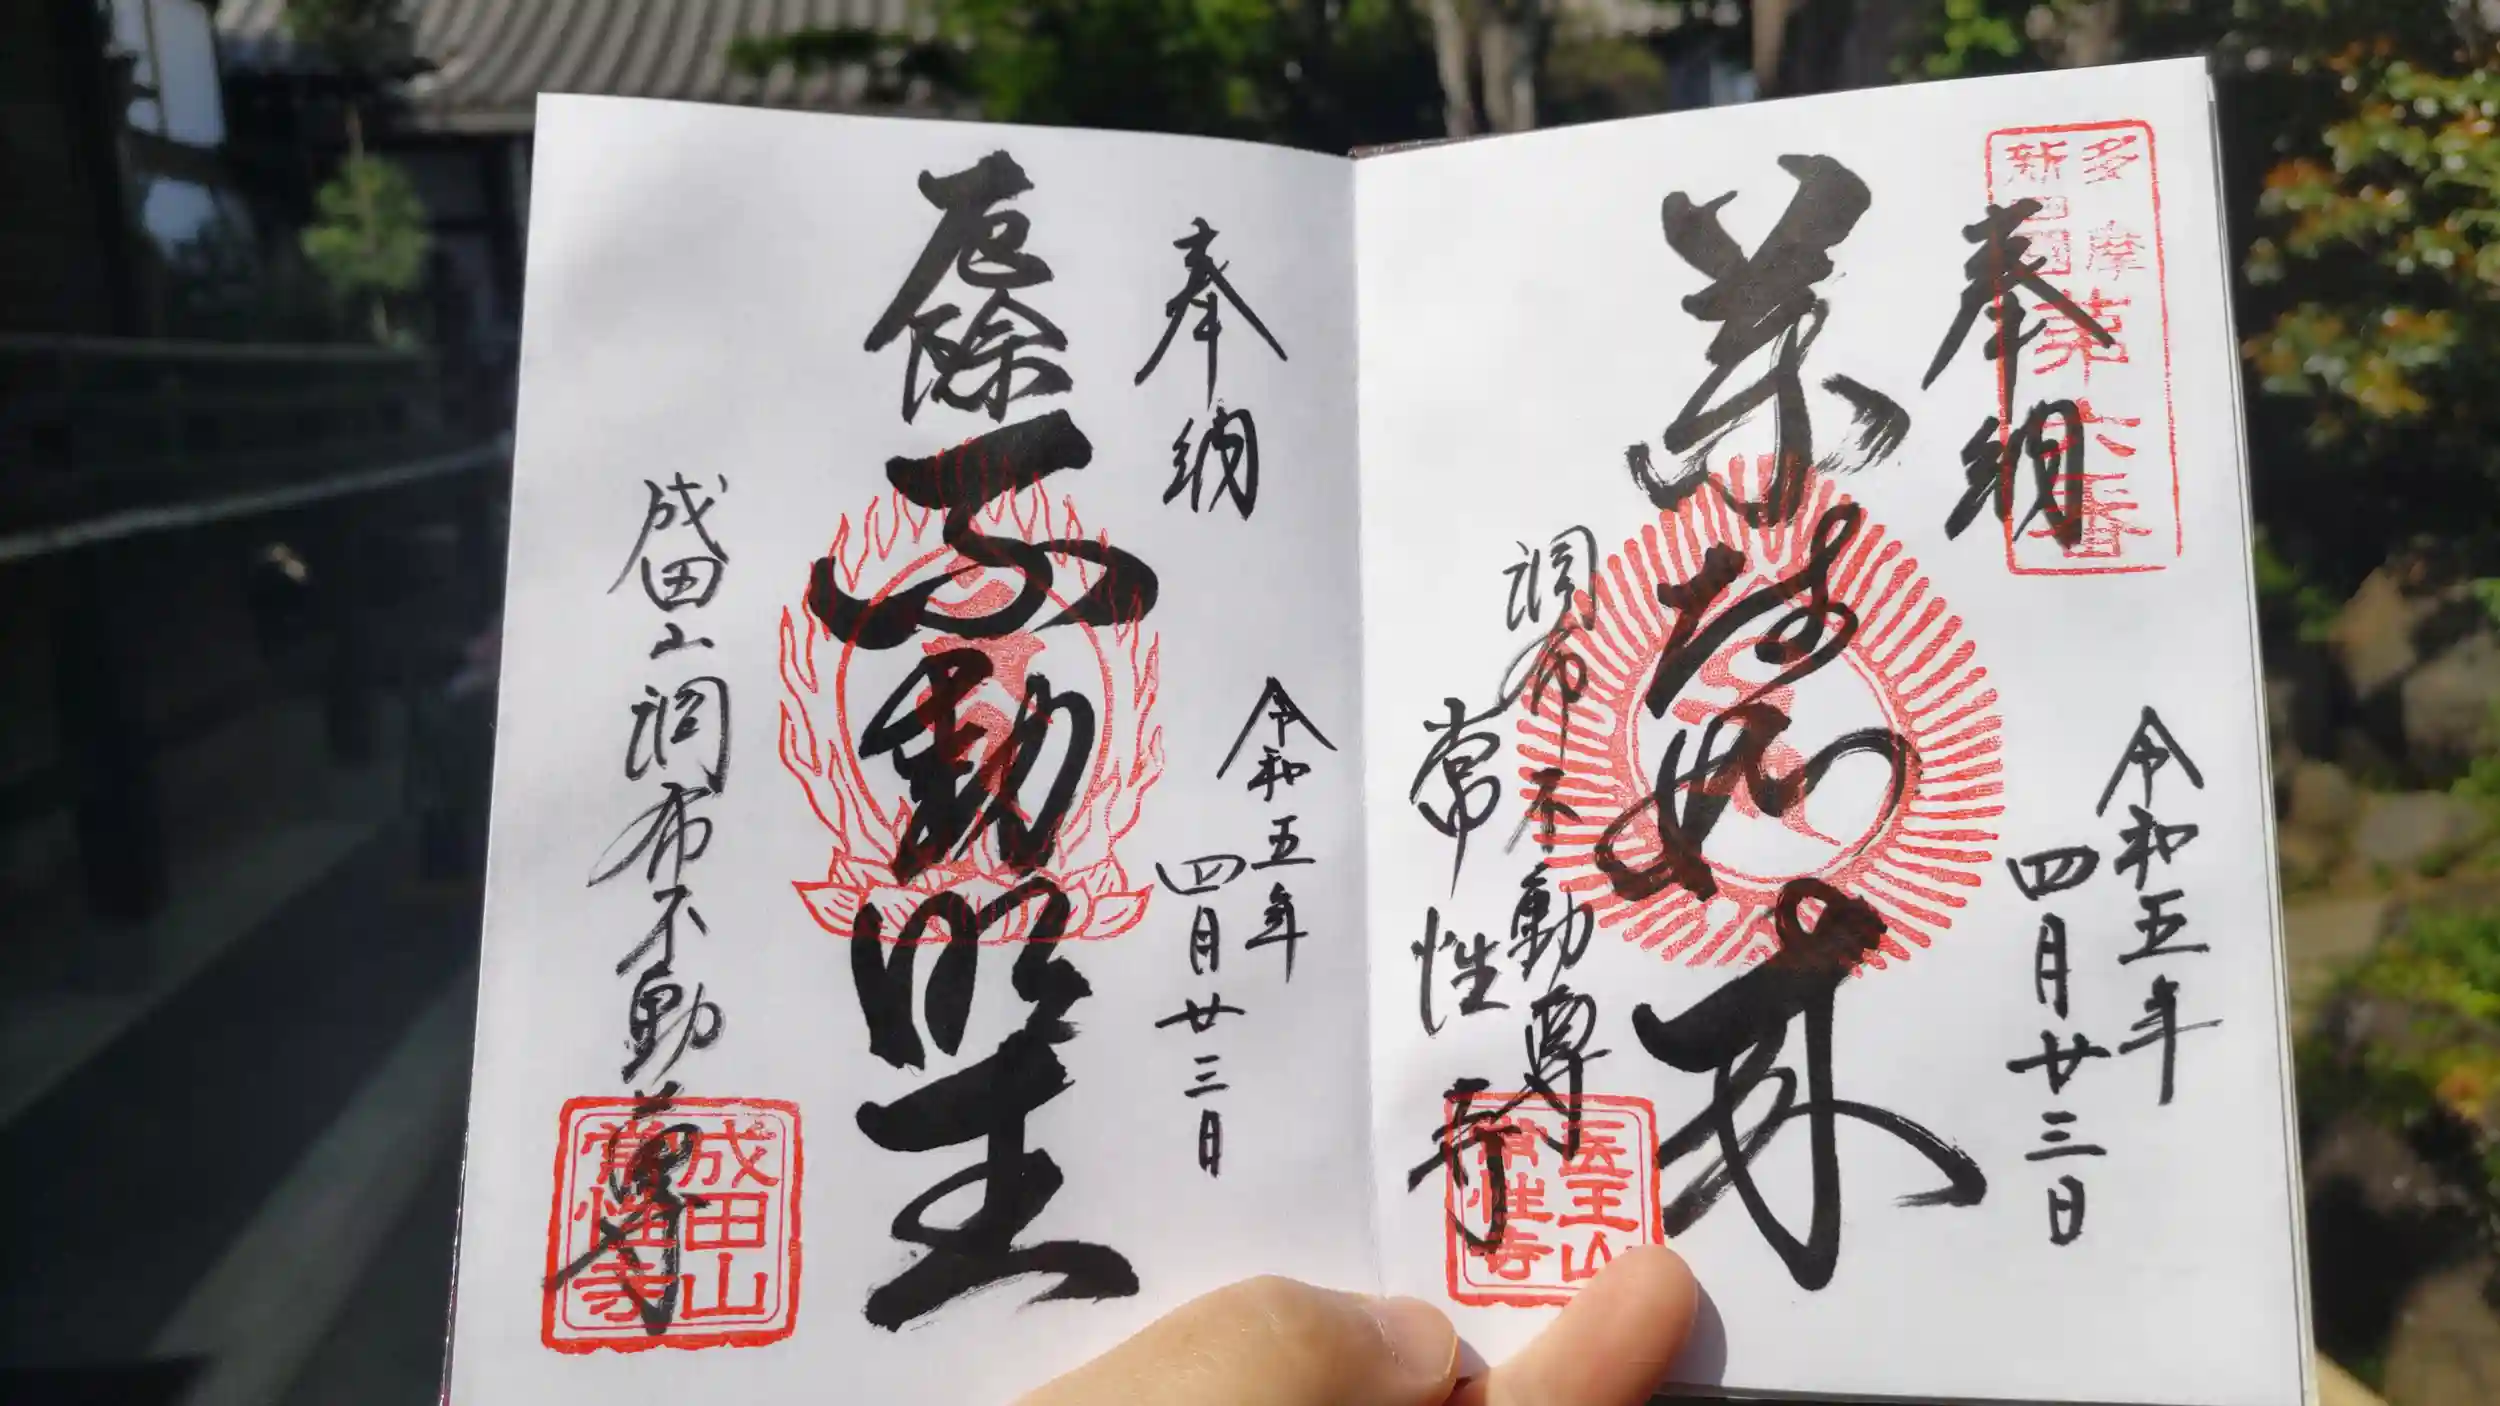 多摩
新四国
第六番
奉納
令和五年
四月廿三日
薬師如来
調布不動尊
常性寺
医王山
常性寺
奉納
令和五年
四月廿三日
厄除不動明王
成田山調布不動尊
成田山
常性寺